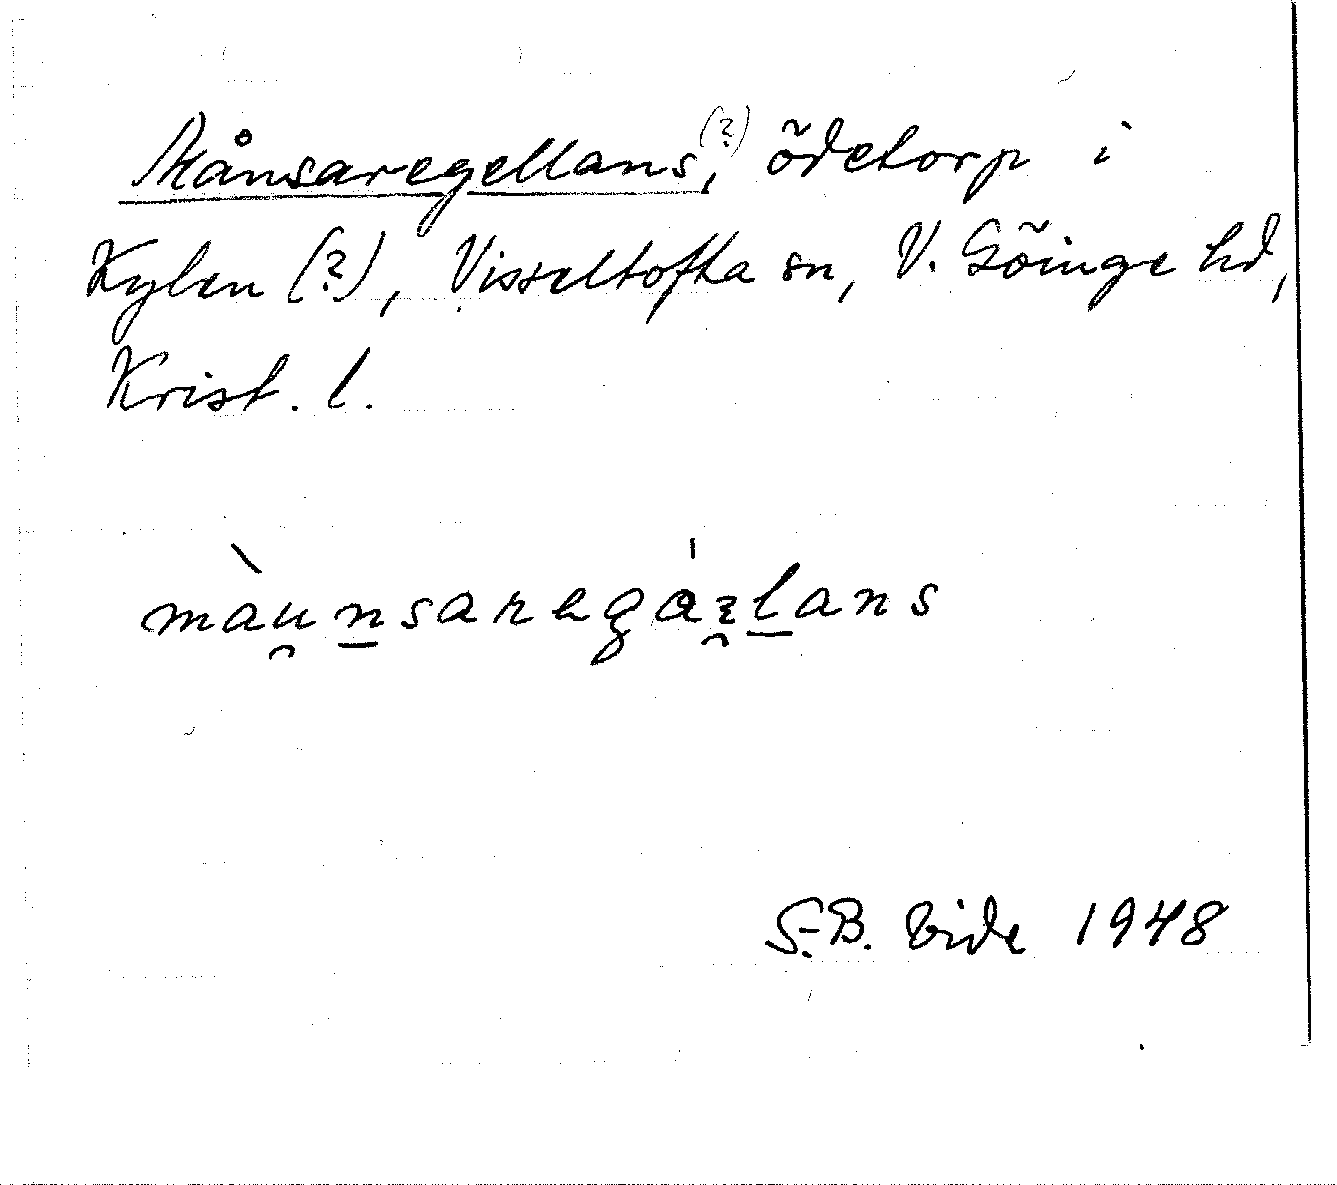 Månsaregellans,(?) ödetorp i
Kylen (?), Visseltofta sn, V. Göinge hd,
Krist. l.
màu̯n̠saregáɪ̯l̠ans
S.-B. Vide 1948